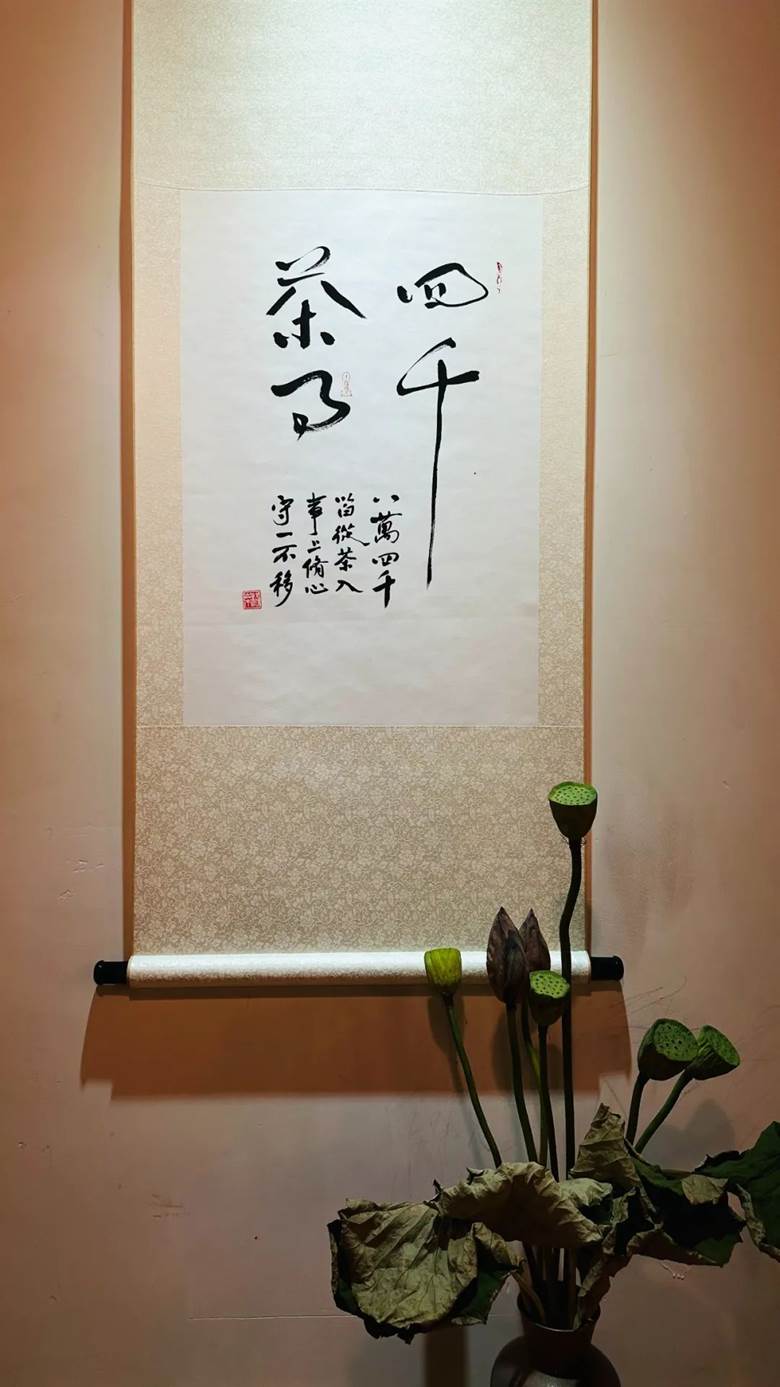 四千
茶事
八萬四千
當從茶入
事上脩心
守一不移